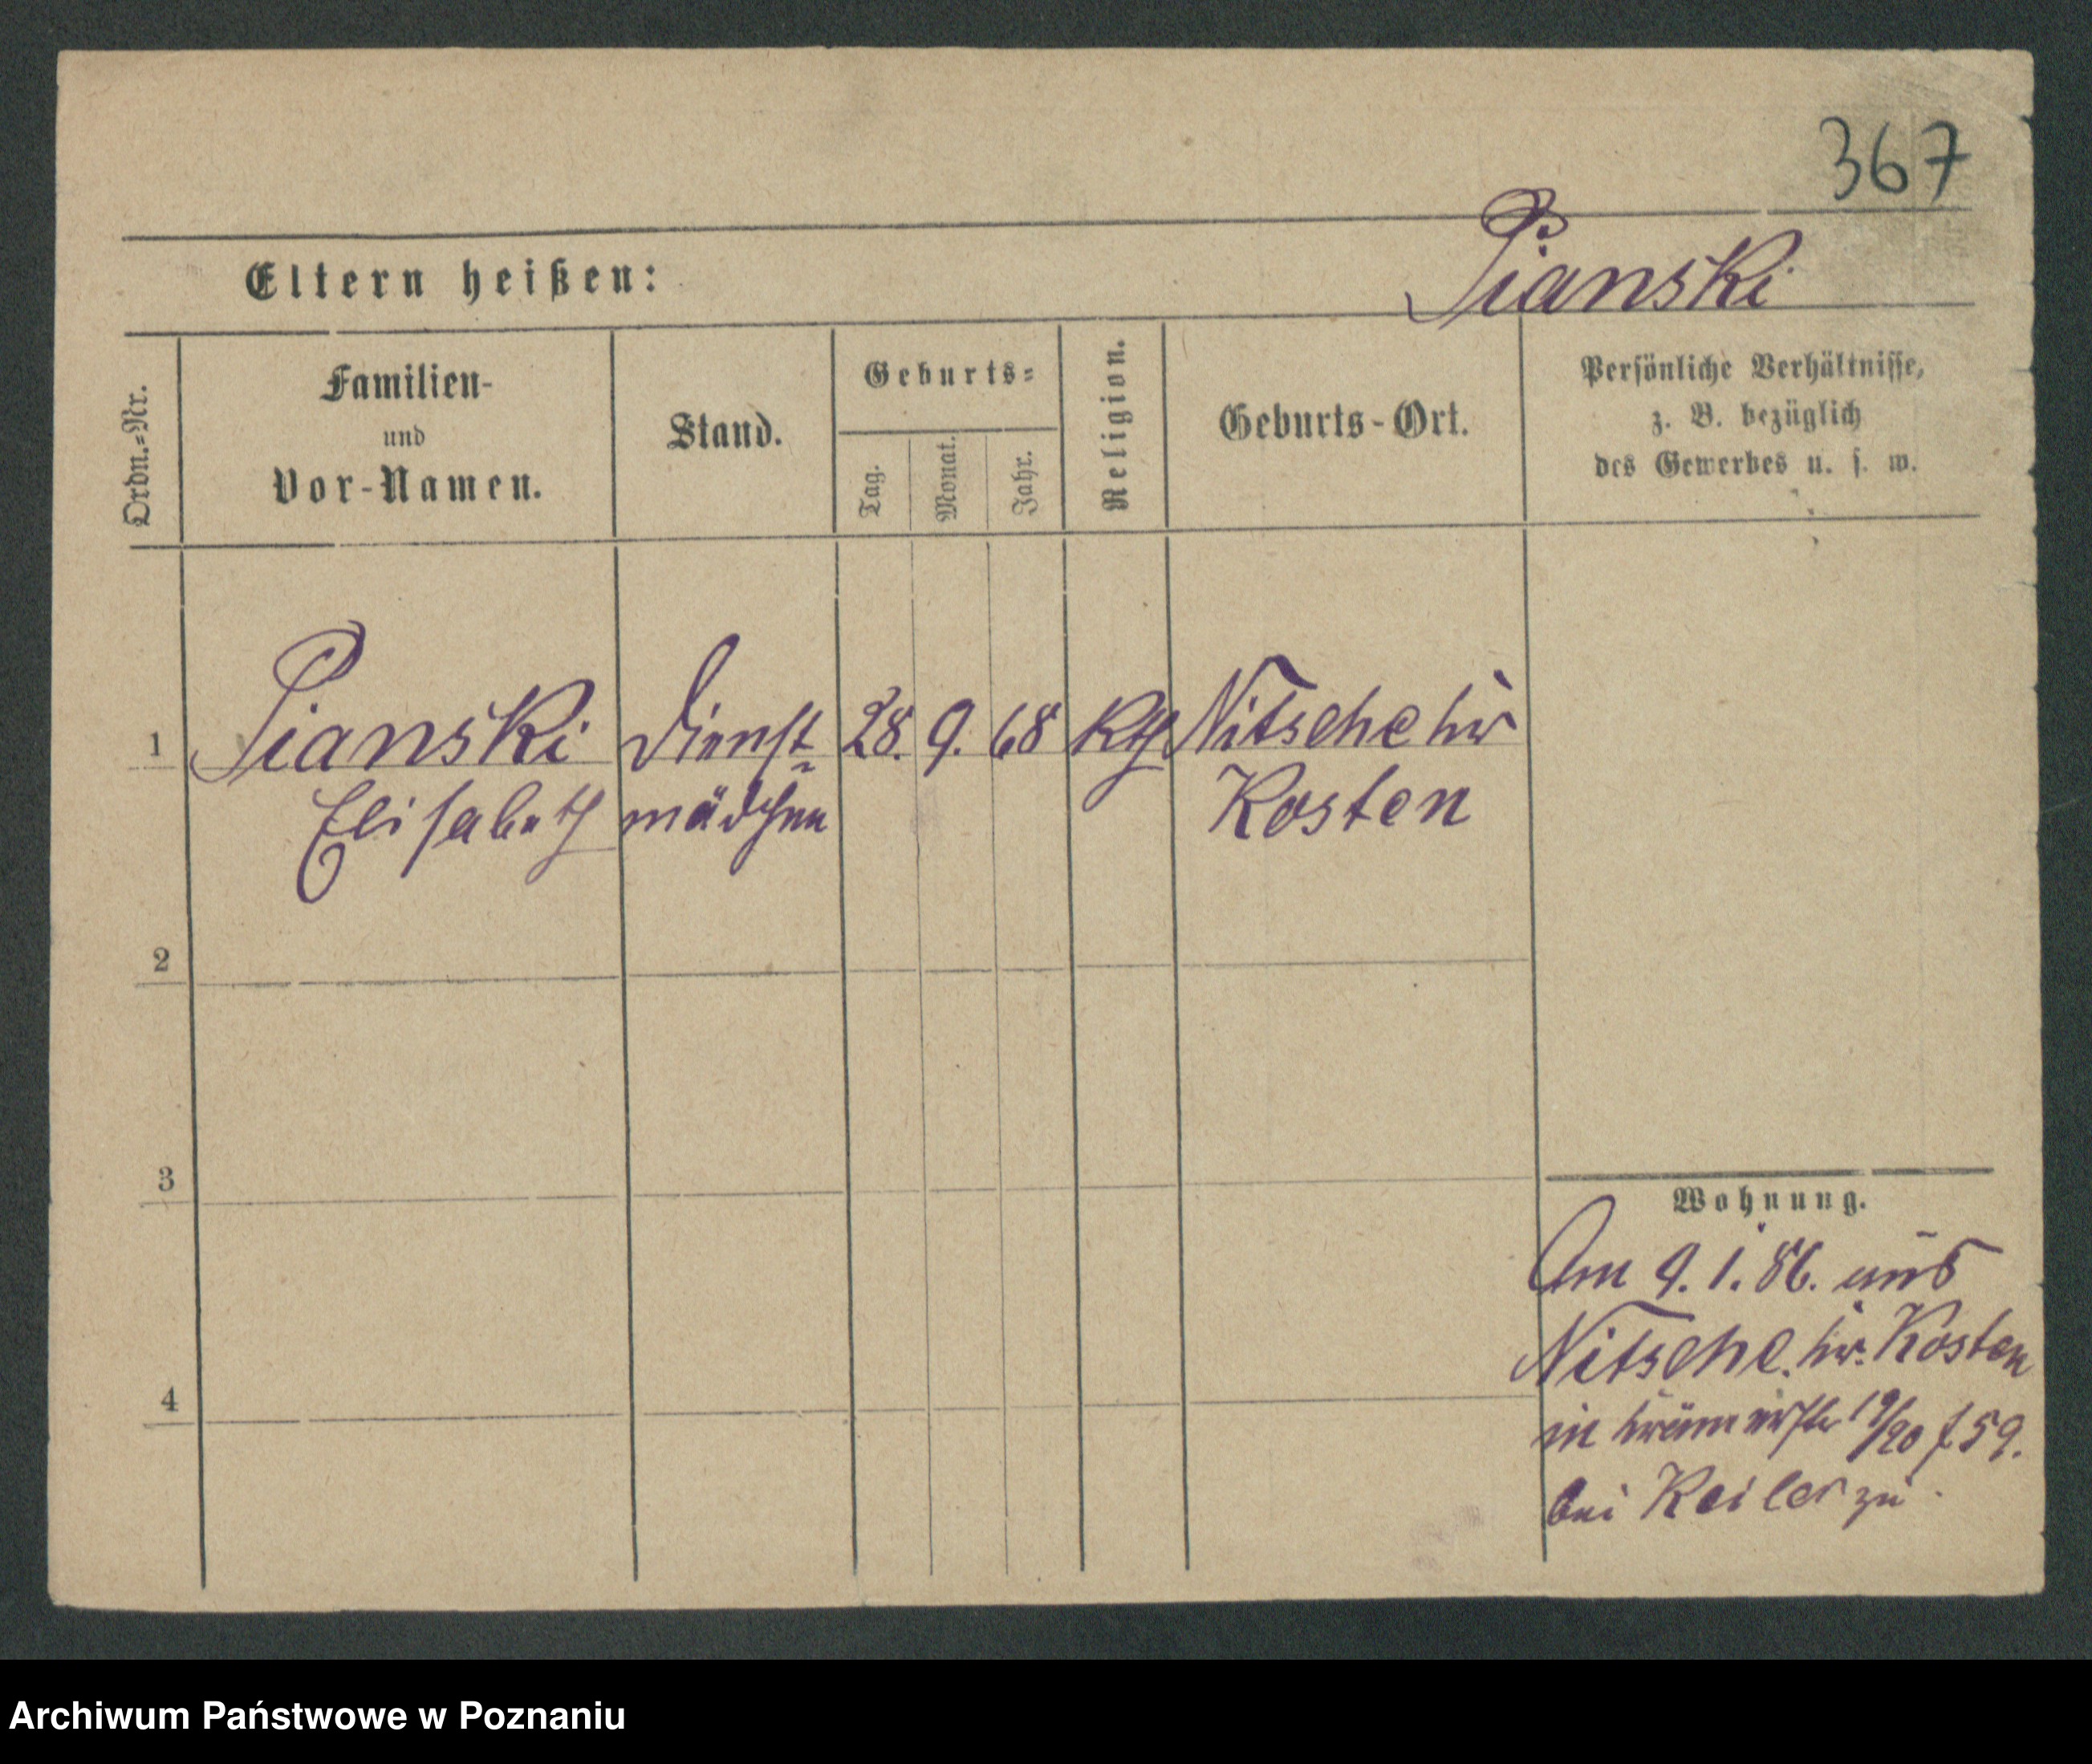 367
Pianski
Eltern heißen:
Ordn.=Nr.
Familien-
und
Vor-Namen.
Stand.
Geburts=
Tag.
Monat.
Jahr.
Religion.
Geburts-Ort.
Persönliche Verhältnisse,
z. B. bezüglich
des Gewerbes u. s. w.
1
Pianski Dienst 28. 9. 68 Kth Nitsche
Elisabeth mädchen Kosten
2
3
4
Wohnung.
Am 9. 1. 86. aus
Nitsche. Kosten
in 19/20 f 59.
bei Keiler zu.
Archiwum Państwowe w Poznaniu